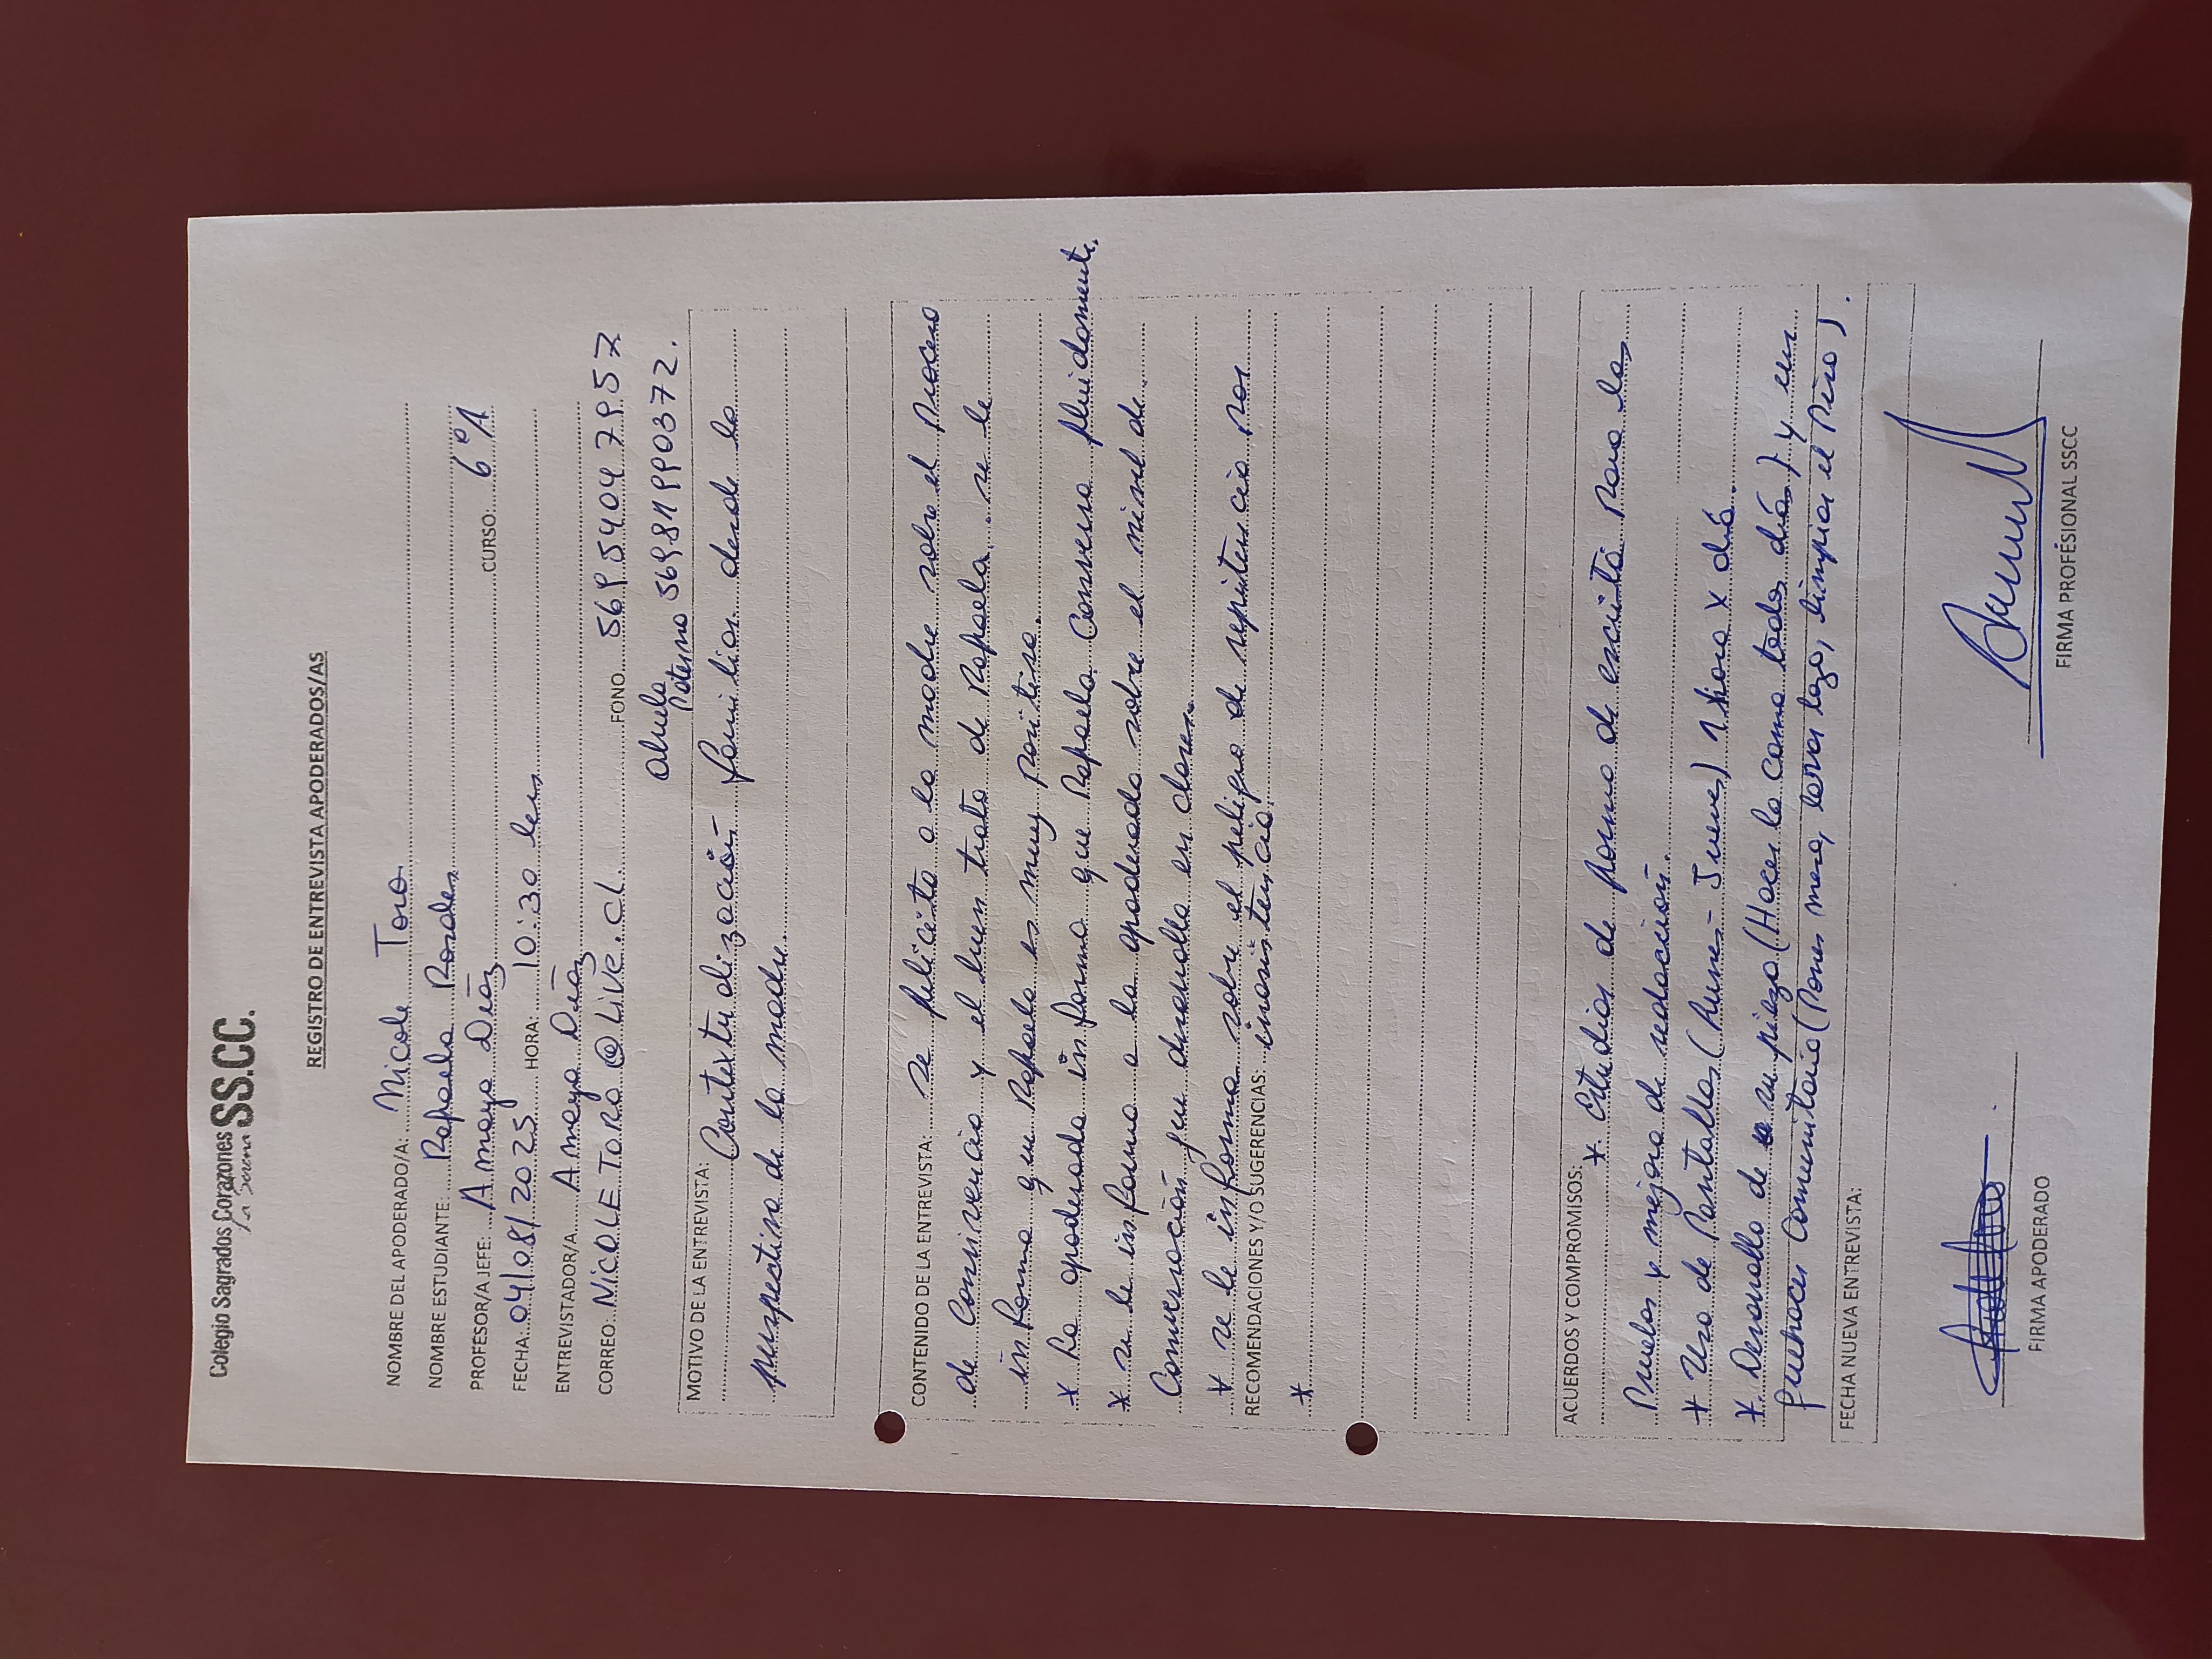 Colegio Sagrados Corazones SS.CC.
La Serena
REGISTRO DE ENTREVISTA APODERADOS/AS
NOMBRE DEL APODERADO/A: Nicole Toro
NOMBRE ESTUDIANTE: Rafaela Rosales
PROFESOR/A JEFE: Amaya Díaz CURSO: 6°A
FECHA: 04/08/2025 HORA: 10:30
ENTREVISTADOR/A Amaya Díaz
CORREO: NicOLETORO@LiVE.cl. FONO 56954047957
abuela
Paterno 56981990372.
MOTIVO DE LA ENTREVISTA: Contextualización familiar desde la
perspectiva de la madre.
CONTENIDO DE LA ENTREVISTA: se felicita a la madre sobre el proceso
de Convivencia y el buen trato de Rafaela. se le
informa que Rafaela es muy positiva.
* La apoderada informa que Rafaela Conversa fluidamente.
* se le informa a la apoderada sobre el nivel de
Conversación que desarrolla en clases.
* se le informa sobre el peligro de repitencia por
RECOMENDACIONES Y/O SUGERENCIAS: inasistencia.
*
ACUERDOS Y COMPROMISOS: * Estudios de forma de escrita Para las
Pruebas y mejora de redacción.
* Uso de Pantallas (Lunes - Jueves) 1 hora x día.
* Desarrollo de su pieza (Hacer la cama todos días) y en
quehacer Comunitario (Poner mesa, lavar loza, limpiar el Piso).
FECHA NUEVA ENTREVISTA:
FIRMA APODERADO
FIRMA PROFESIONAL SSCC